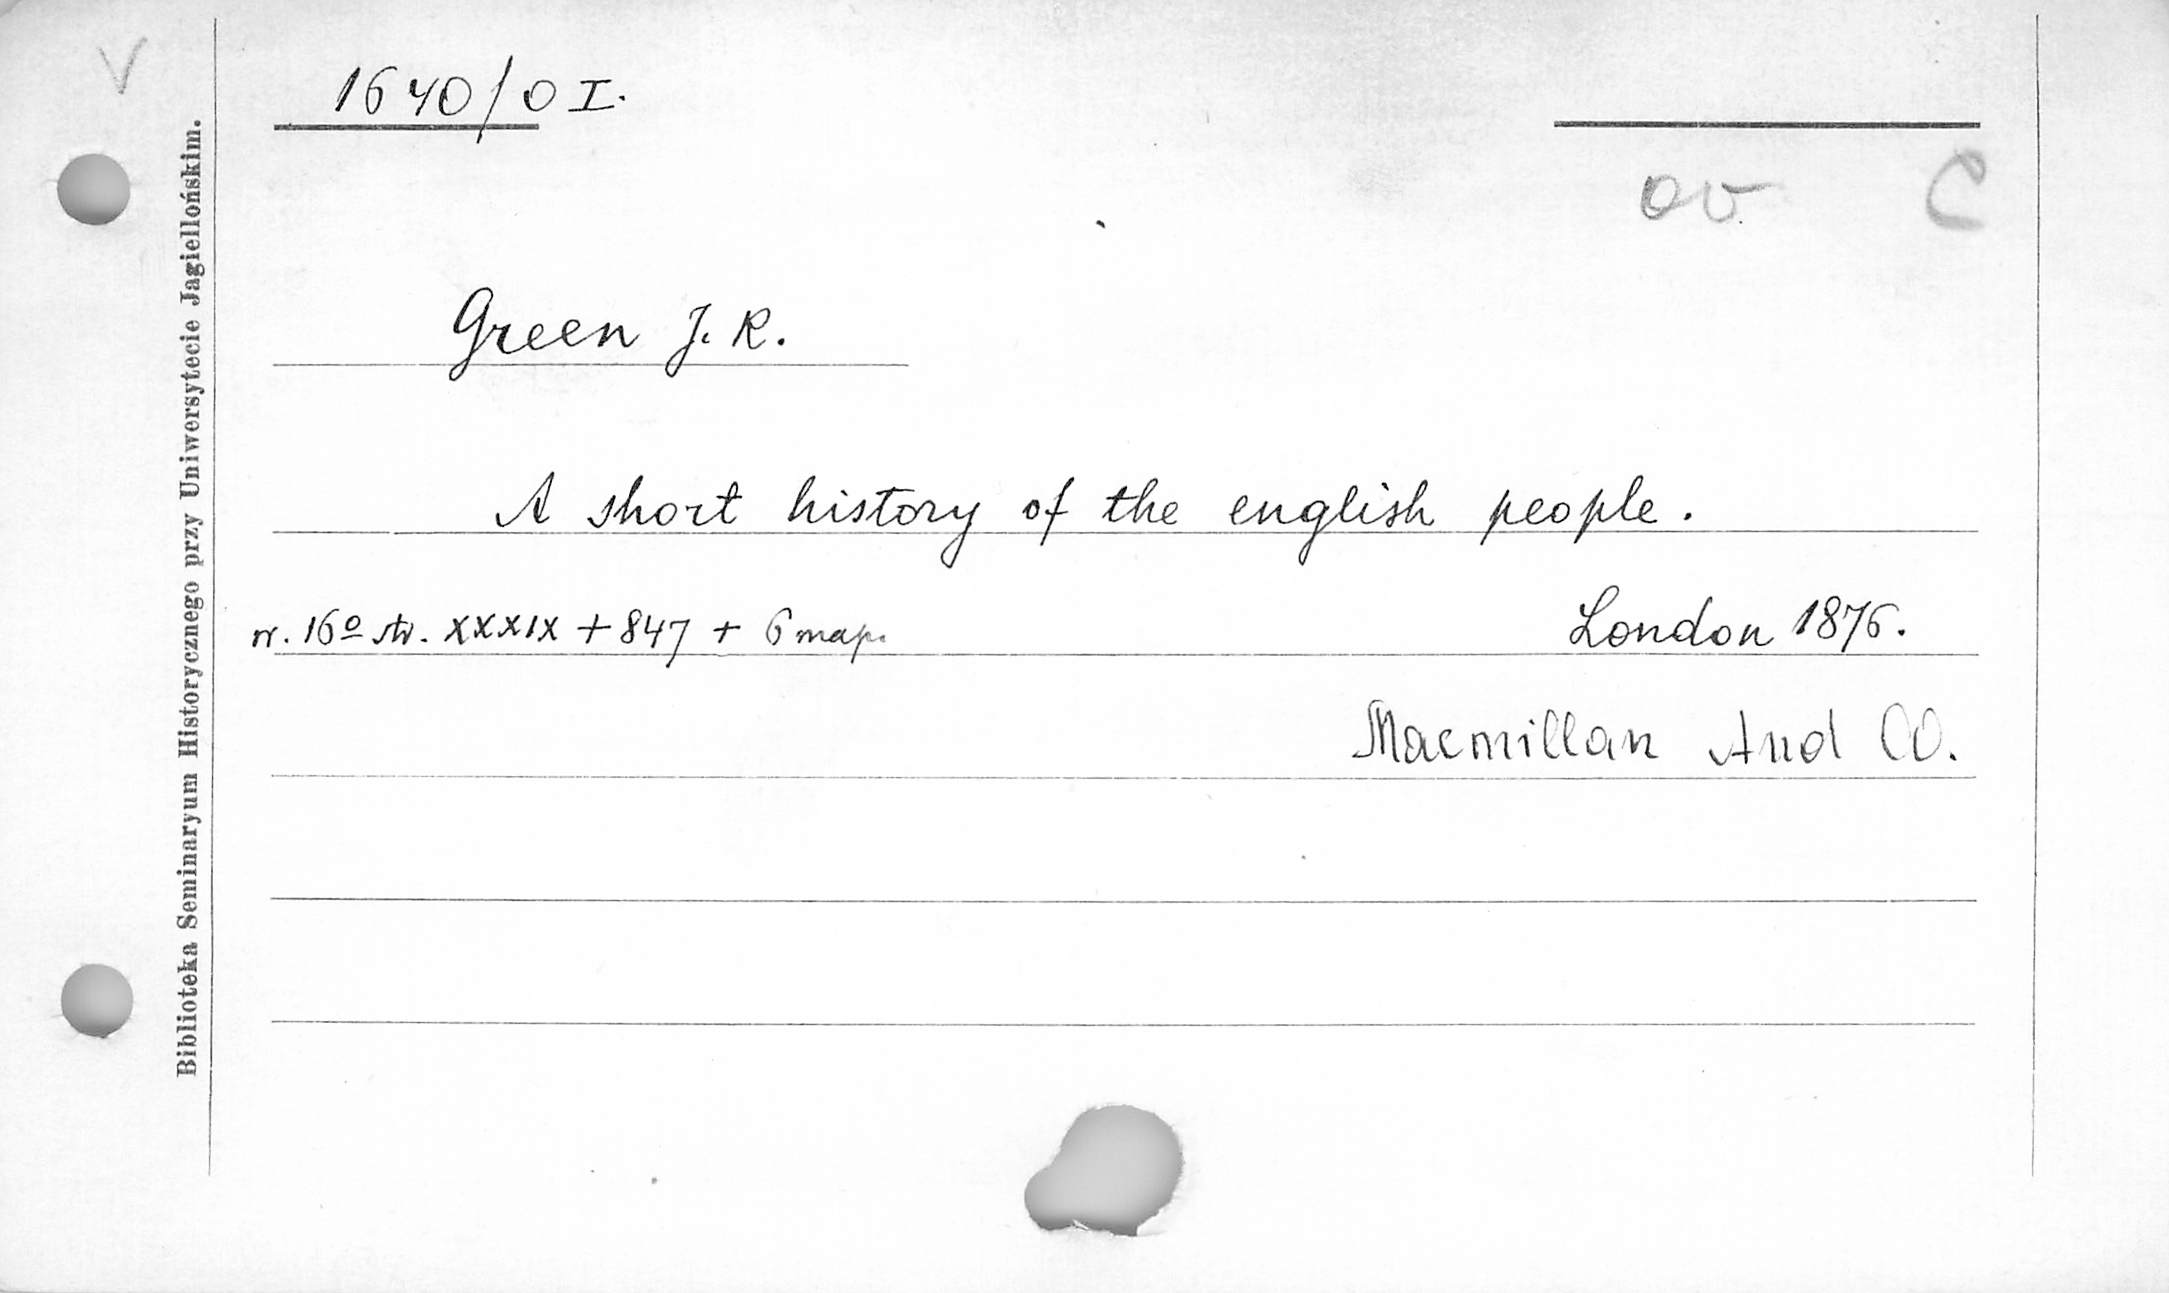 V
1640/O I.
ov C
Green J. R.
A short history of the english people.
w. 16º str. XXXIX + 847 + 6 map.
London 1876.
Macmillan And CO.
Biblioteka Seminaryum Historycznego przy Uniwersytecie Jagiellońskim.